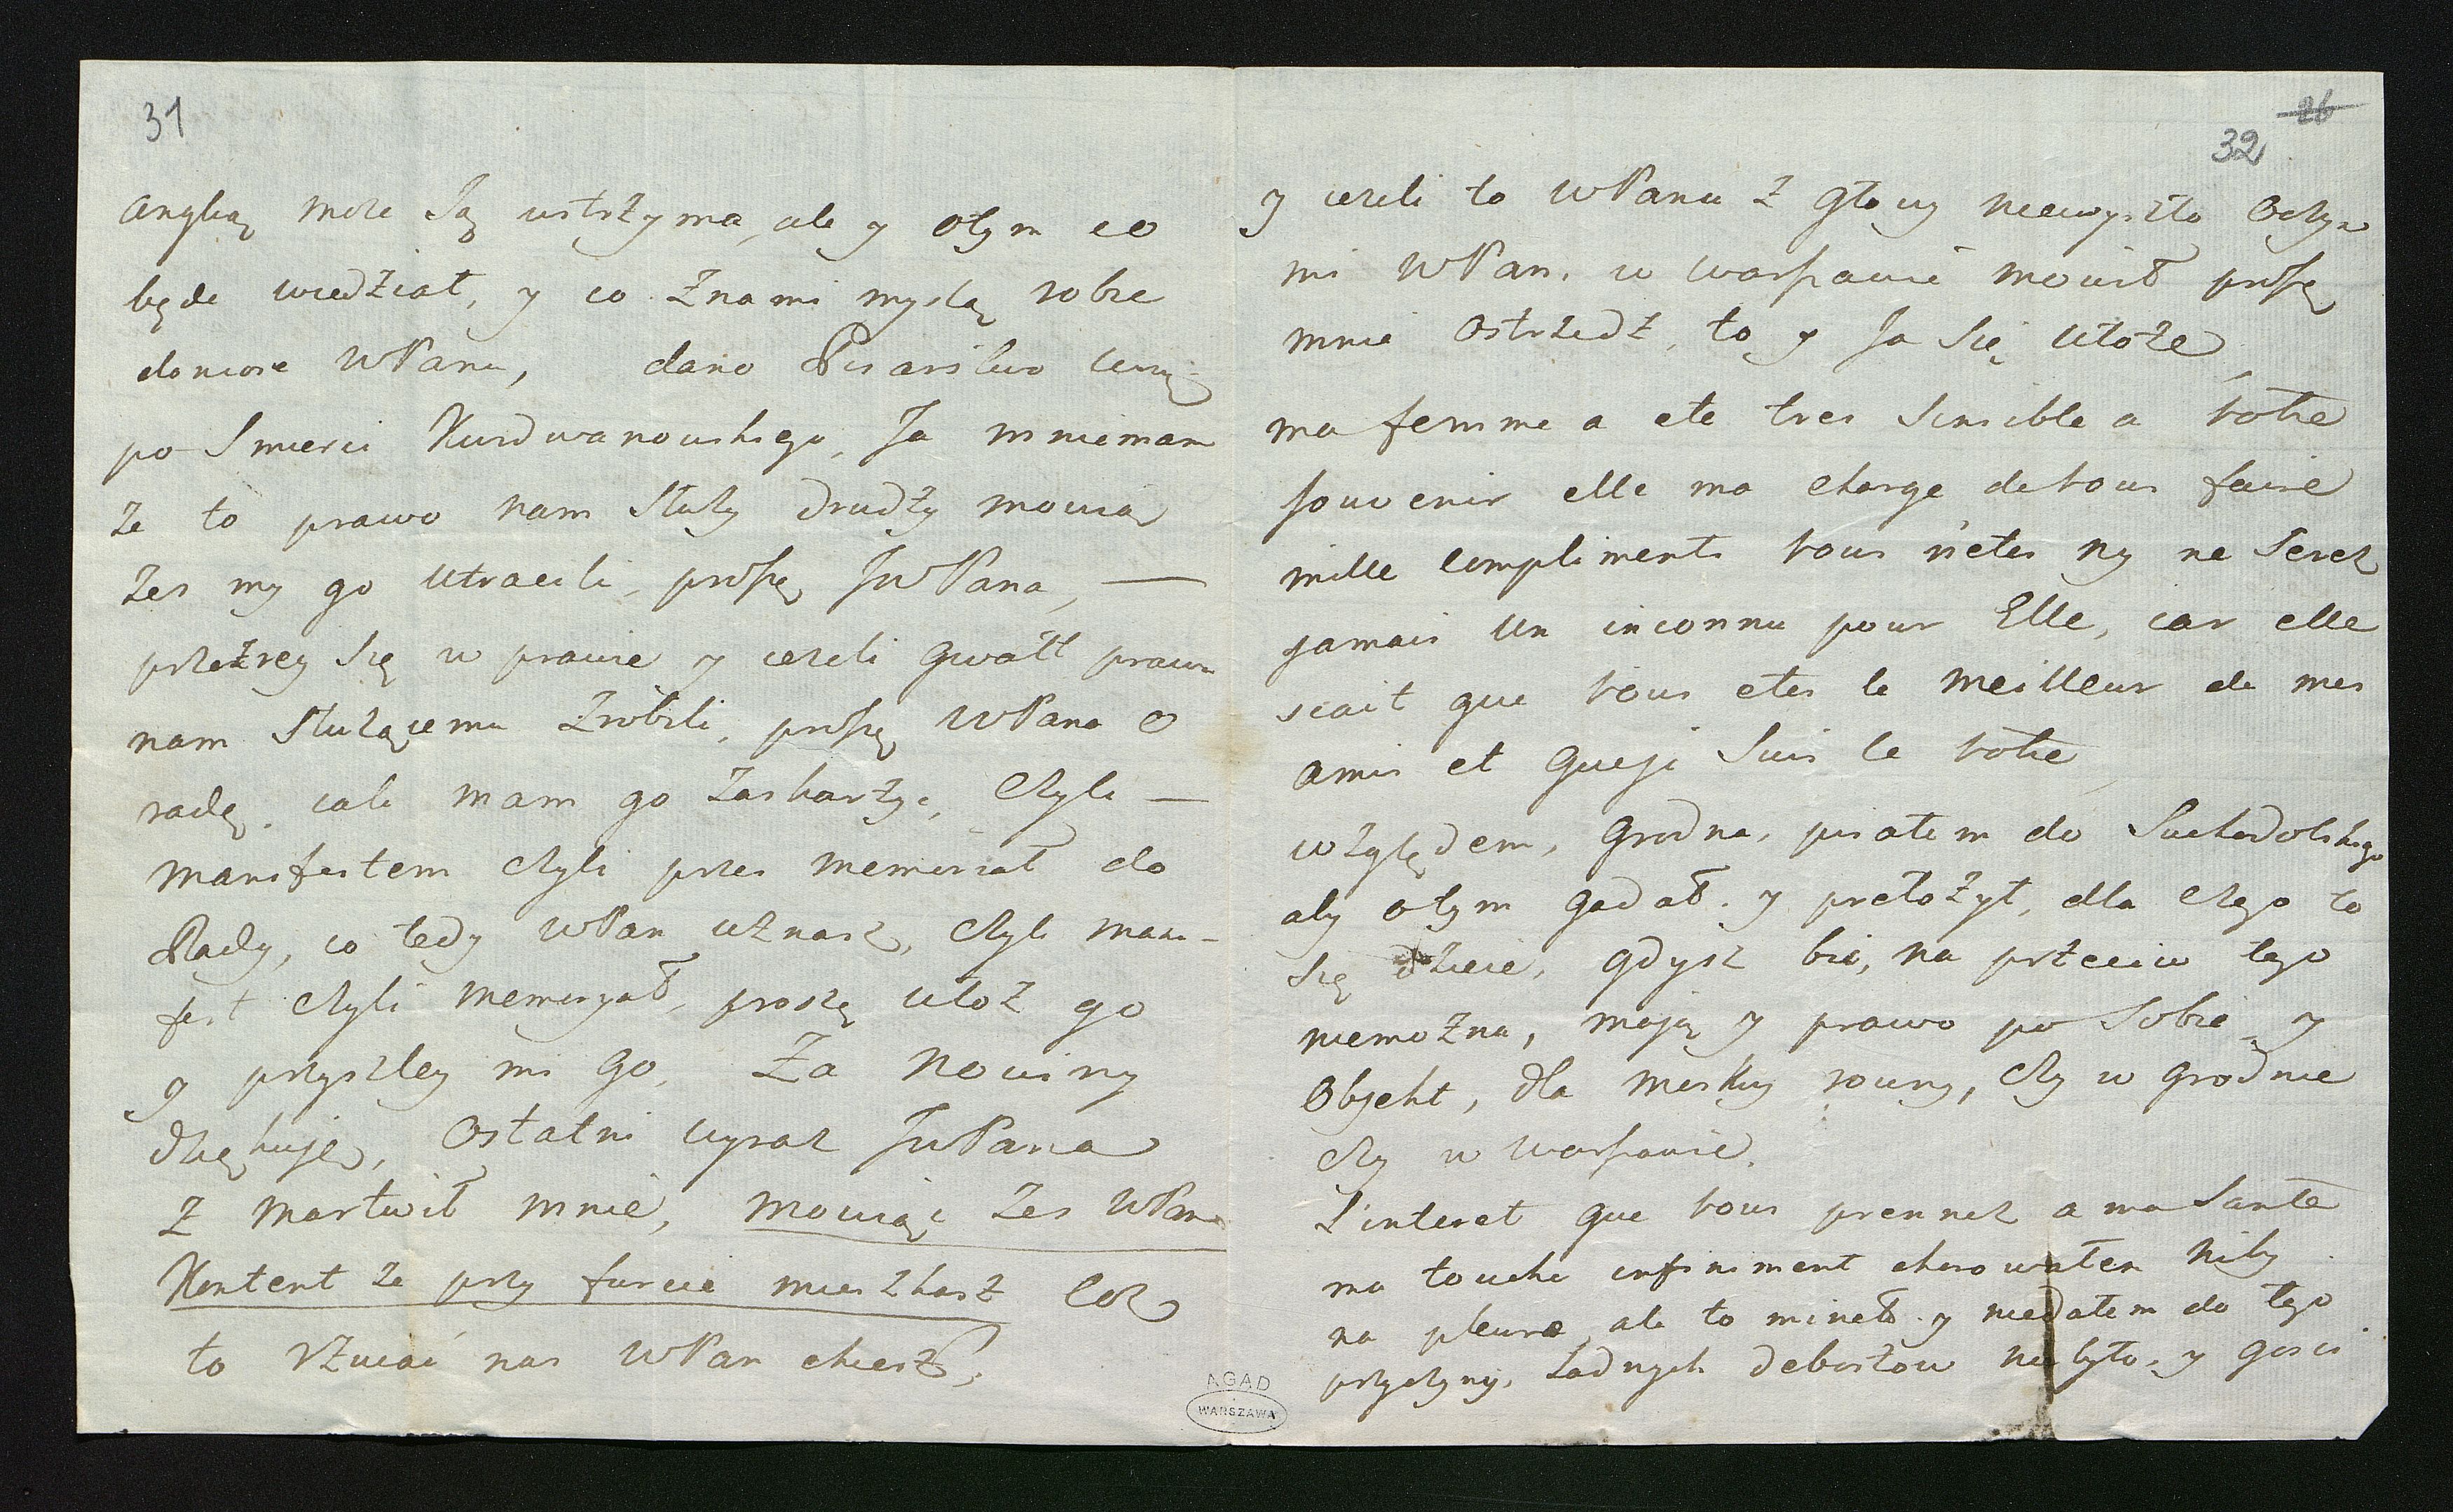 31
anglią może Są ustrzyma, ale y otym co
będe wiedział, y co Znami myslą robic
doniose WPanu, dano Pisarstwo
po Smierci Kurdwanowskego, Ja mniemam
że to prawo nam Służy drudzy mowią
żes my go utracili, proszę JWPana, —
przeżrey Się w prawie y iezeli Gwałt prawu
nam Służącemu Zrobili, proszę WPana o
radę, iak mam go Zaskarżyc, Czyli —
manifestem czyli przes memoriał do
Rady, co tedy WPan uznasz, Czyli mani-
fest czyli memoryał, proszę ułoż go
y przyszley mi go, Za Nowiny
dziękuje, Ostatni wyraz JWPana
Z martwił mnie, mowiąc żes WPan
Kontent że przy furcie mieszkasz Coż
to rzucać nas WPan chcesz,
26
32
y iezeli to WPanu Z Głowy niewyszło Oczym
mi WPan, w warszawie mowił proszę
mnie Ostrzedz, to y Ja Się ułoże,
ma femme a ete tres Sensible a votre
souvenir elle ma charge de vous faire
mille compliments vous n'etes ny ne Serez
jamais un inconnu pour Elle, car elle
scait que vous etes le meilleur de mes
amis et queje Suis le votre,
względem, Grodna, pisałem do Suchodolskego
aby otym gadał. y prełożył, dla czego to
Się dzieie, gdysz bić, na przeciw tego
niemożna, mają y prawo po Sobie y
Objekt, dla Moskwy rowny, Czy w grodnie
Czy w warszawie.
L'interet que vous prennez a ma Sante
ma touche infiniment chorowałem niby
na pleurę ale to mineło y niedałem do tego
przyczyny, żadnych deboszow niebyło, y gosci
AGAD
WARSZAWA